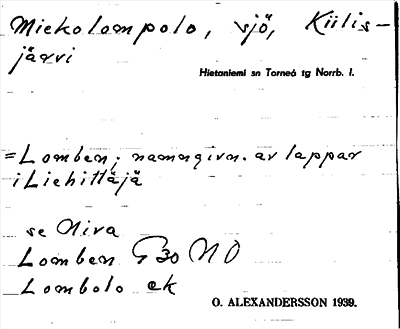 Miekolompolo, sjö, Kiilis-
järvi
Hietaniemi sn Torneå tg Norrb. l.
= Lomben; namngivn. av lappar
i Liehittäjä
se Niva
Lomben G 30 NO
Lombolo ek
O. ALEXANDERSSON 1939.